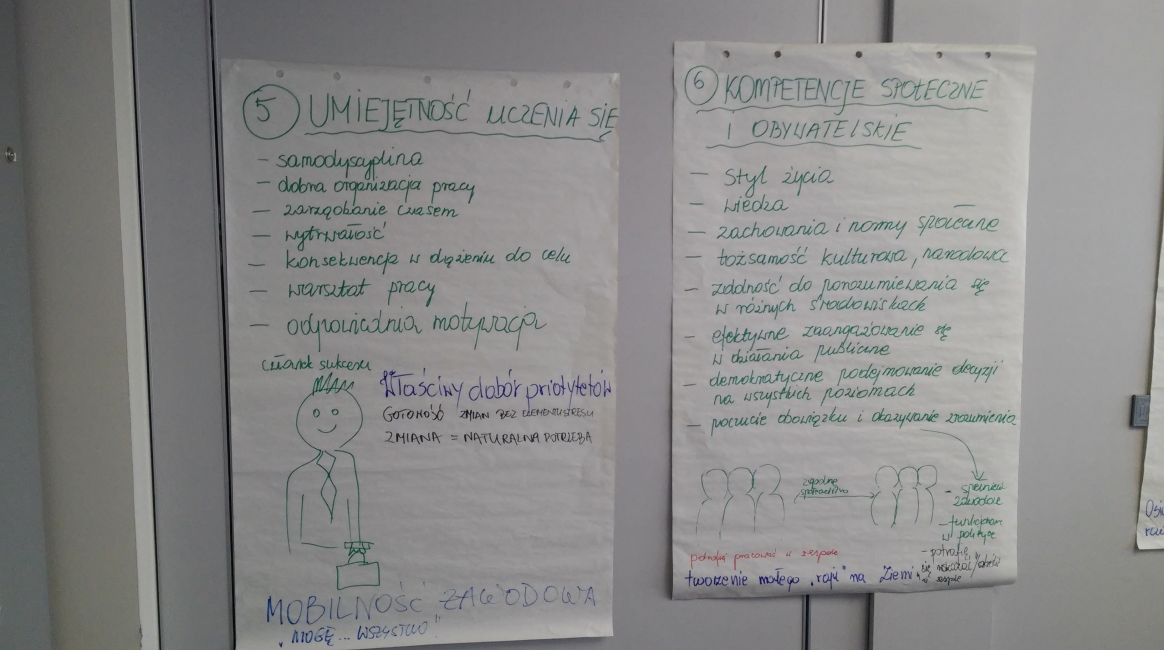 5 UMIEJĘTNOŚĆ UCZENIA SIĘ
- samodyscyplina
- dobra organizacja pracy
- zarządzanie czasem
- wytrwałość
- konsekwencja w dążeniu do celu
- warsztat pracy
- odpowiednia motywacja
człowiek sukcesu
Właściwy dobór priorytetów
GOTOWOŚĆ ZMIAN BEZ ELEMENTU STRESU
ZMIANA = NATURALNA POTRZEBA
MOBILNOŚĆ ZAWODOWA
"MOGĘ... WSZYSTKO"
6 KOMPETENCJE SPOŁECZNE
I OBYWATELSKIE
- Styl życia
- wiedza
- zachowania i normy społeczne
- tożsamość kulturowa, narodowa
- zdolność do porozumiewania się
w różnych środowiskach
- efektywne zaangażowanie się
w działania publiczne
- demokratyczne podejmowanie decyzji
na wszystkich poziomach
- poczucie obowiązku i okazywanie zrozumienia
zgodne
- w polityce
- potrafię
potrafią pracować w zespole
tworzenie małego "raju" na Ziemi
zespole